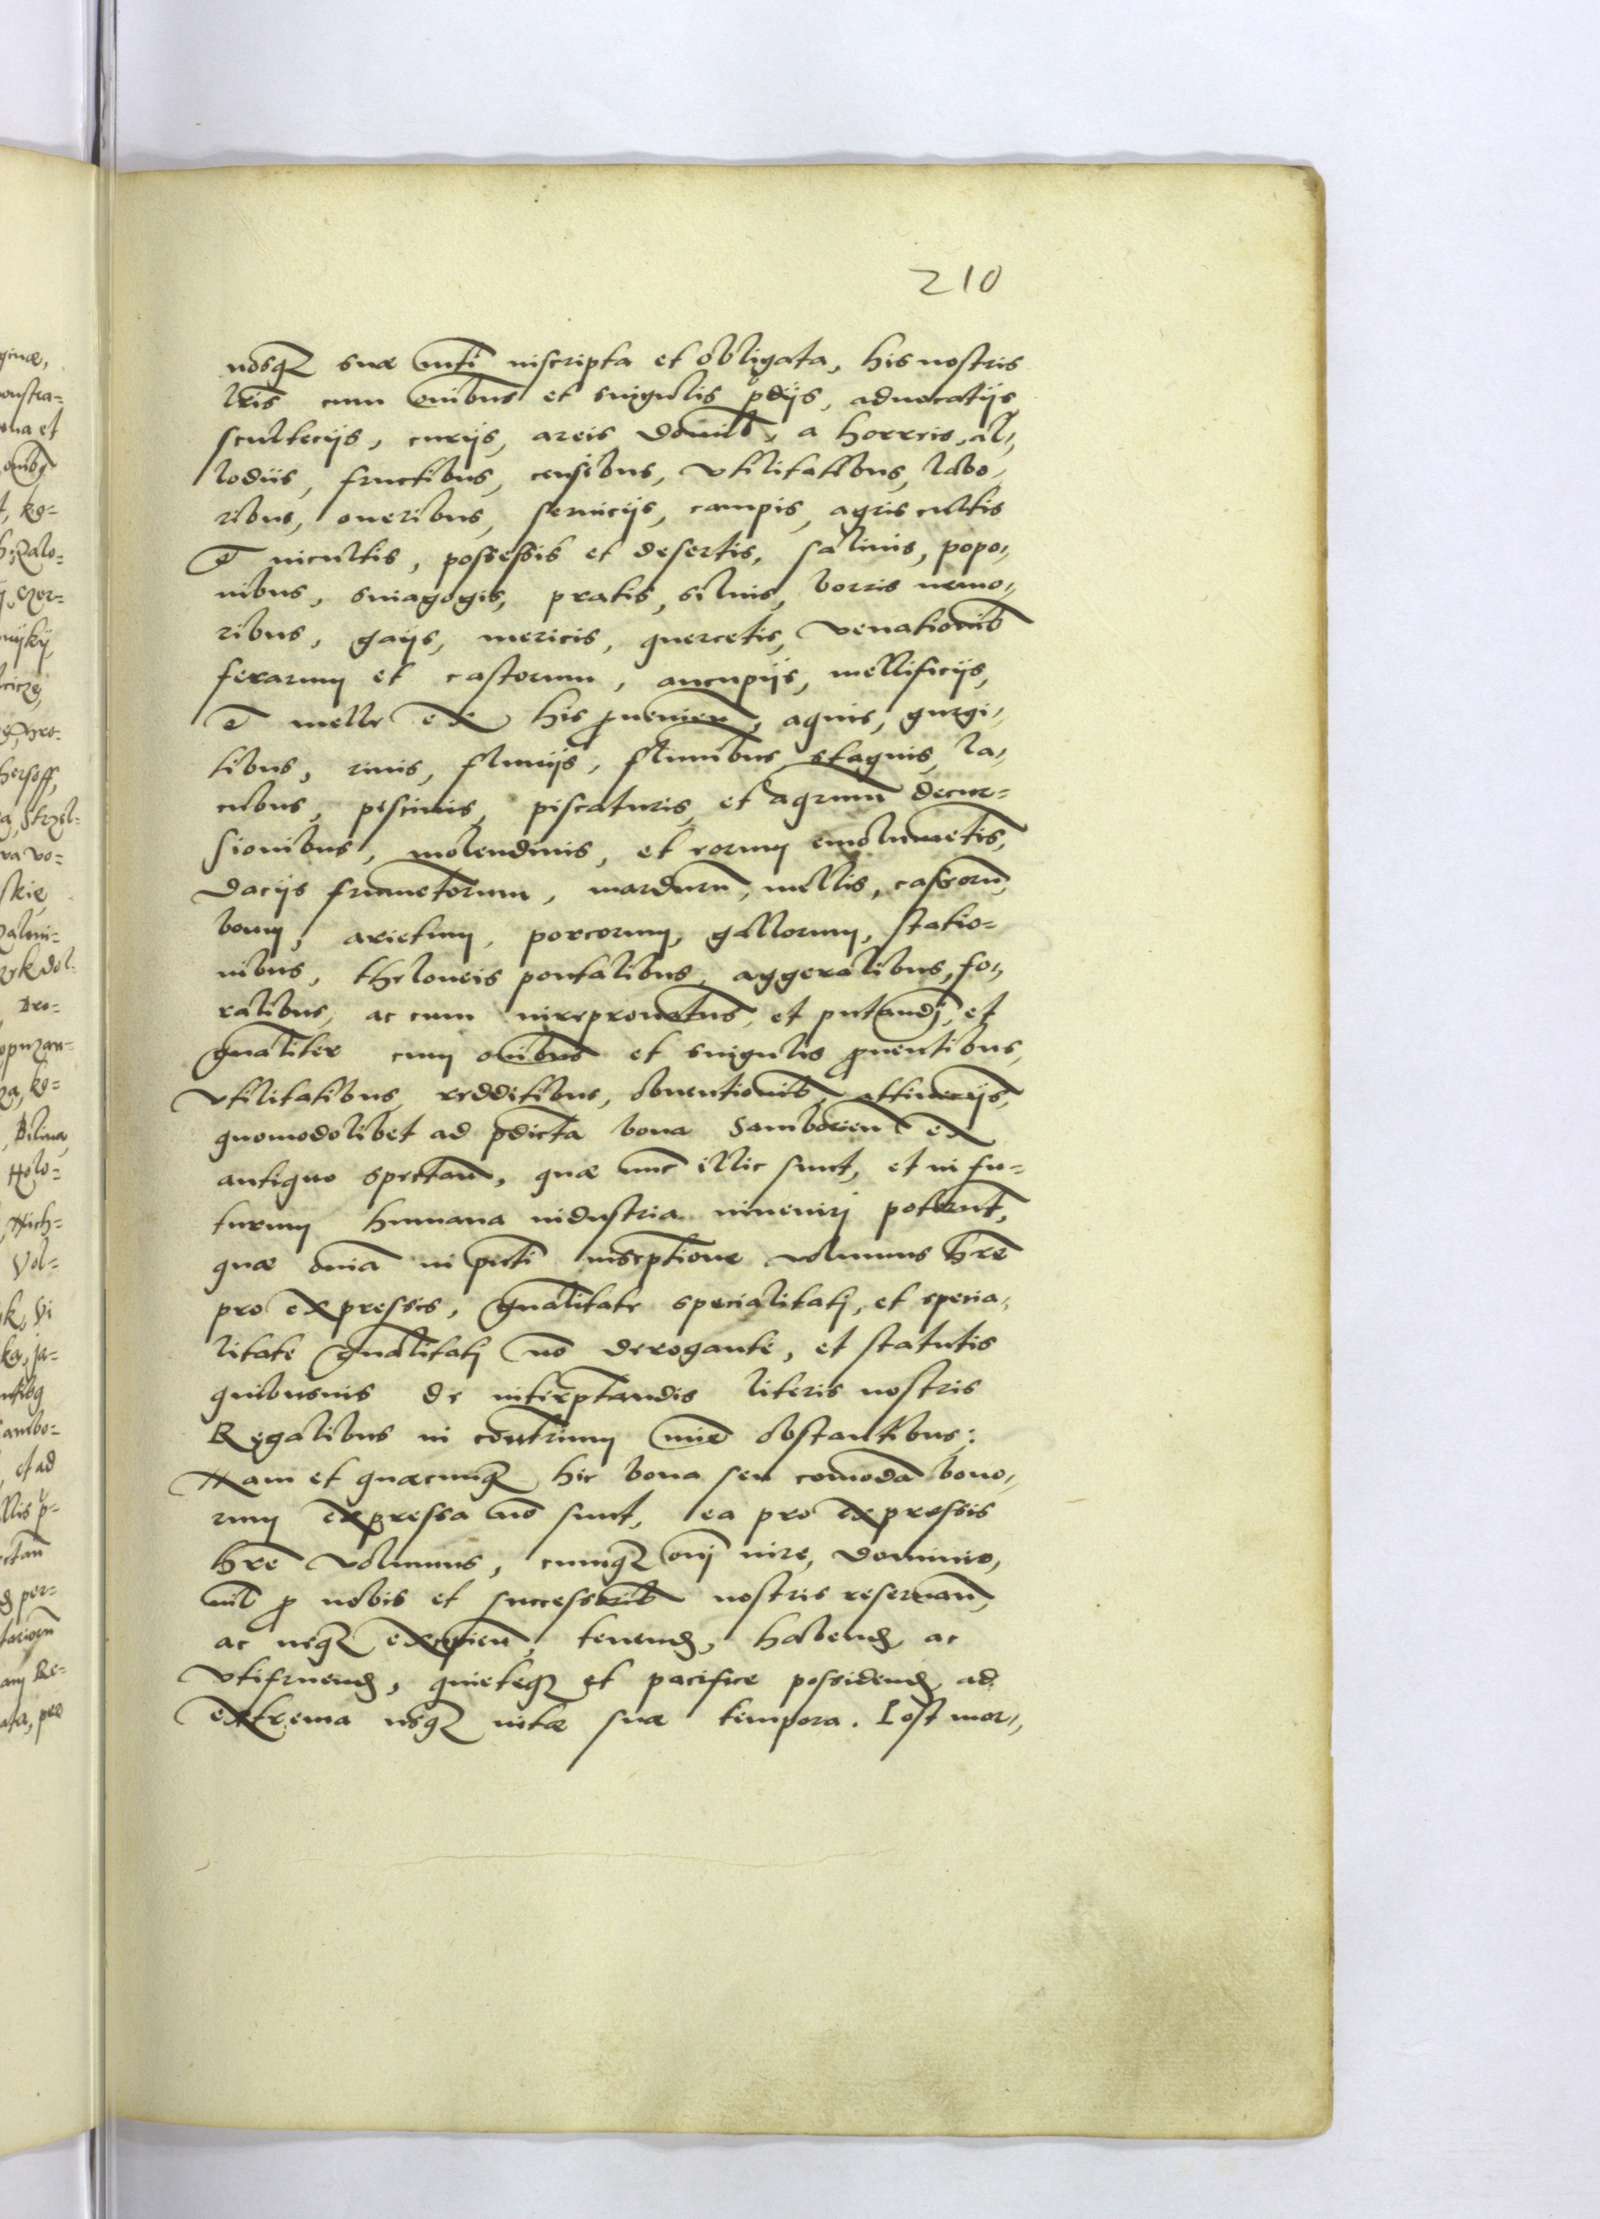 210
nosq₃ suæ mti inscripta et obligata, his nostris
lris cum omibus et singulis pdijs, aduocatijs
scultecijs, curijs, areis domib, a horreis, al=
lodiis, fructibus, censibus, vtilitatibus, labo=
ribus, oneribus, seruicijs, campis, agris cultis
et incultis, possessis et desertis, salinis, popo=
nibus, sinagogis, pratis, siluis, borris nemo=
ribus, gaijs, mericis, quercetis, venationib
ferarum et castorum, aucupijs, mellificijs,
et melle ex his puenien, aquis, gurgi=
tibus, riuis, fluuijs, fluminibus stagnis, la=
cubus, piscinis, piscaturis, et aqrum decur=
sionibus, molendinis, et eorum emolumetis,
dacijs frumetorum, mardurum, mellis, caseorum,
boum, arietum, porcorum, gallorum, statio=
nibus, theloneis pontalibus, aggeralibus, fo=
ralibus, ac cum iurepronatus, et putandj, et
gnaliter cum omibus et singulis puentibus,
vtilitatibus, redditibus, obuentionib, attinecijs,
quomodolibet ad pdicta bona Samborien ex
antiquo spectan, quæ nnc illic sunt, et in fu=
turum humana industria inuenirj poterut,
quæ omia in pnti inscptione volumus hre
pro expressis, gnalitate specialitatj, et specia=
litate gnalitatj no derogante, et statutis
quibusuis de interptandis literis nostris
Regalibus in cotrium mie obstantibus:
Nam et quæcunq₃ hic bona seu comoda bono=
rum expressa no sunt, ea pro expressis
hre volumus, cumq₃ omj iure, dominio,
nil p nobis et successorib nostris reseruan,
ac neq₃ excipien, tenend, habend, ac
vtifruend, quieteq₃ et pacifice possidend, ad
extrema usq₃ vitæ suæ tempora. Post mor=